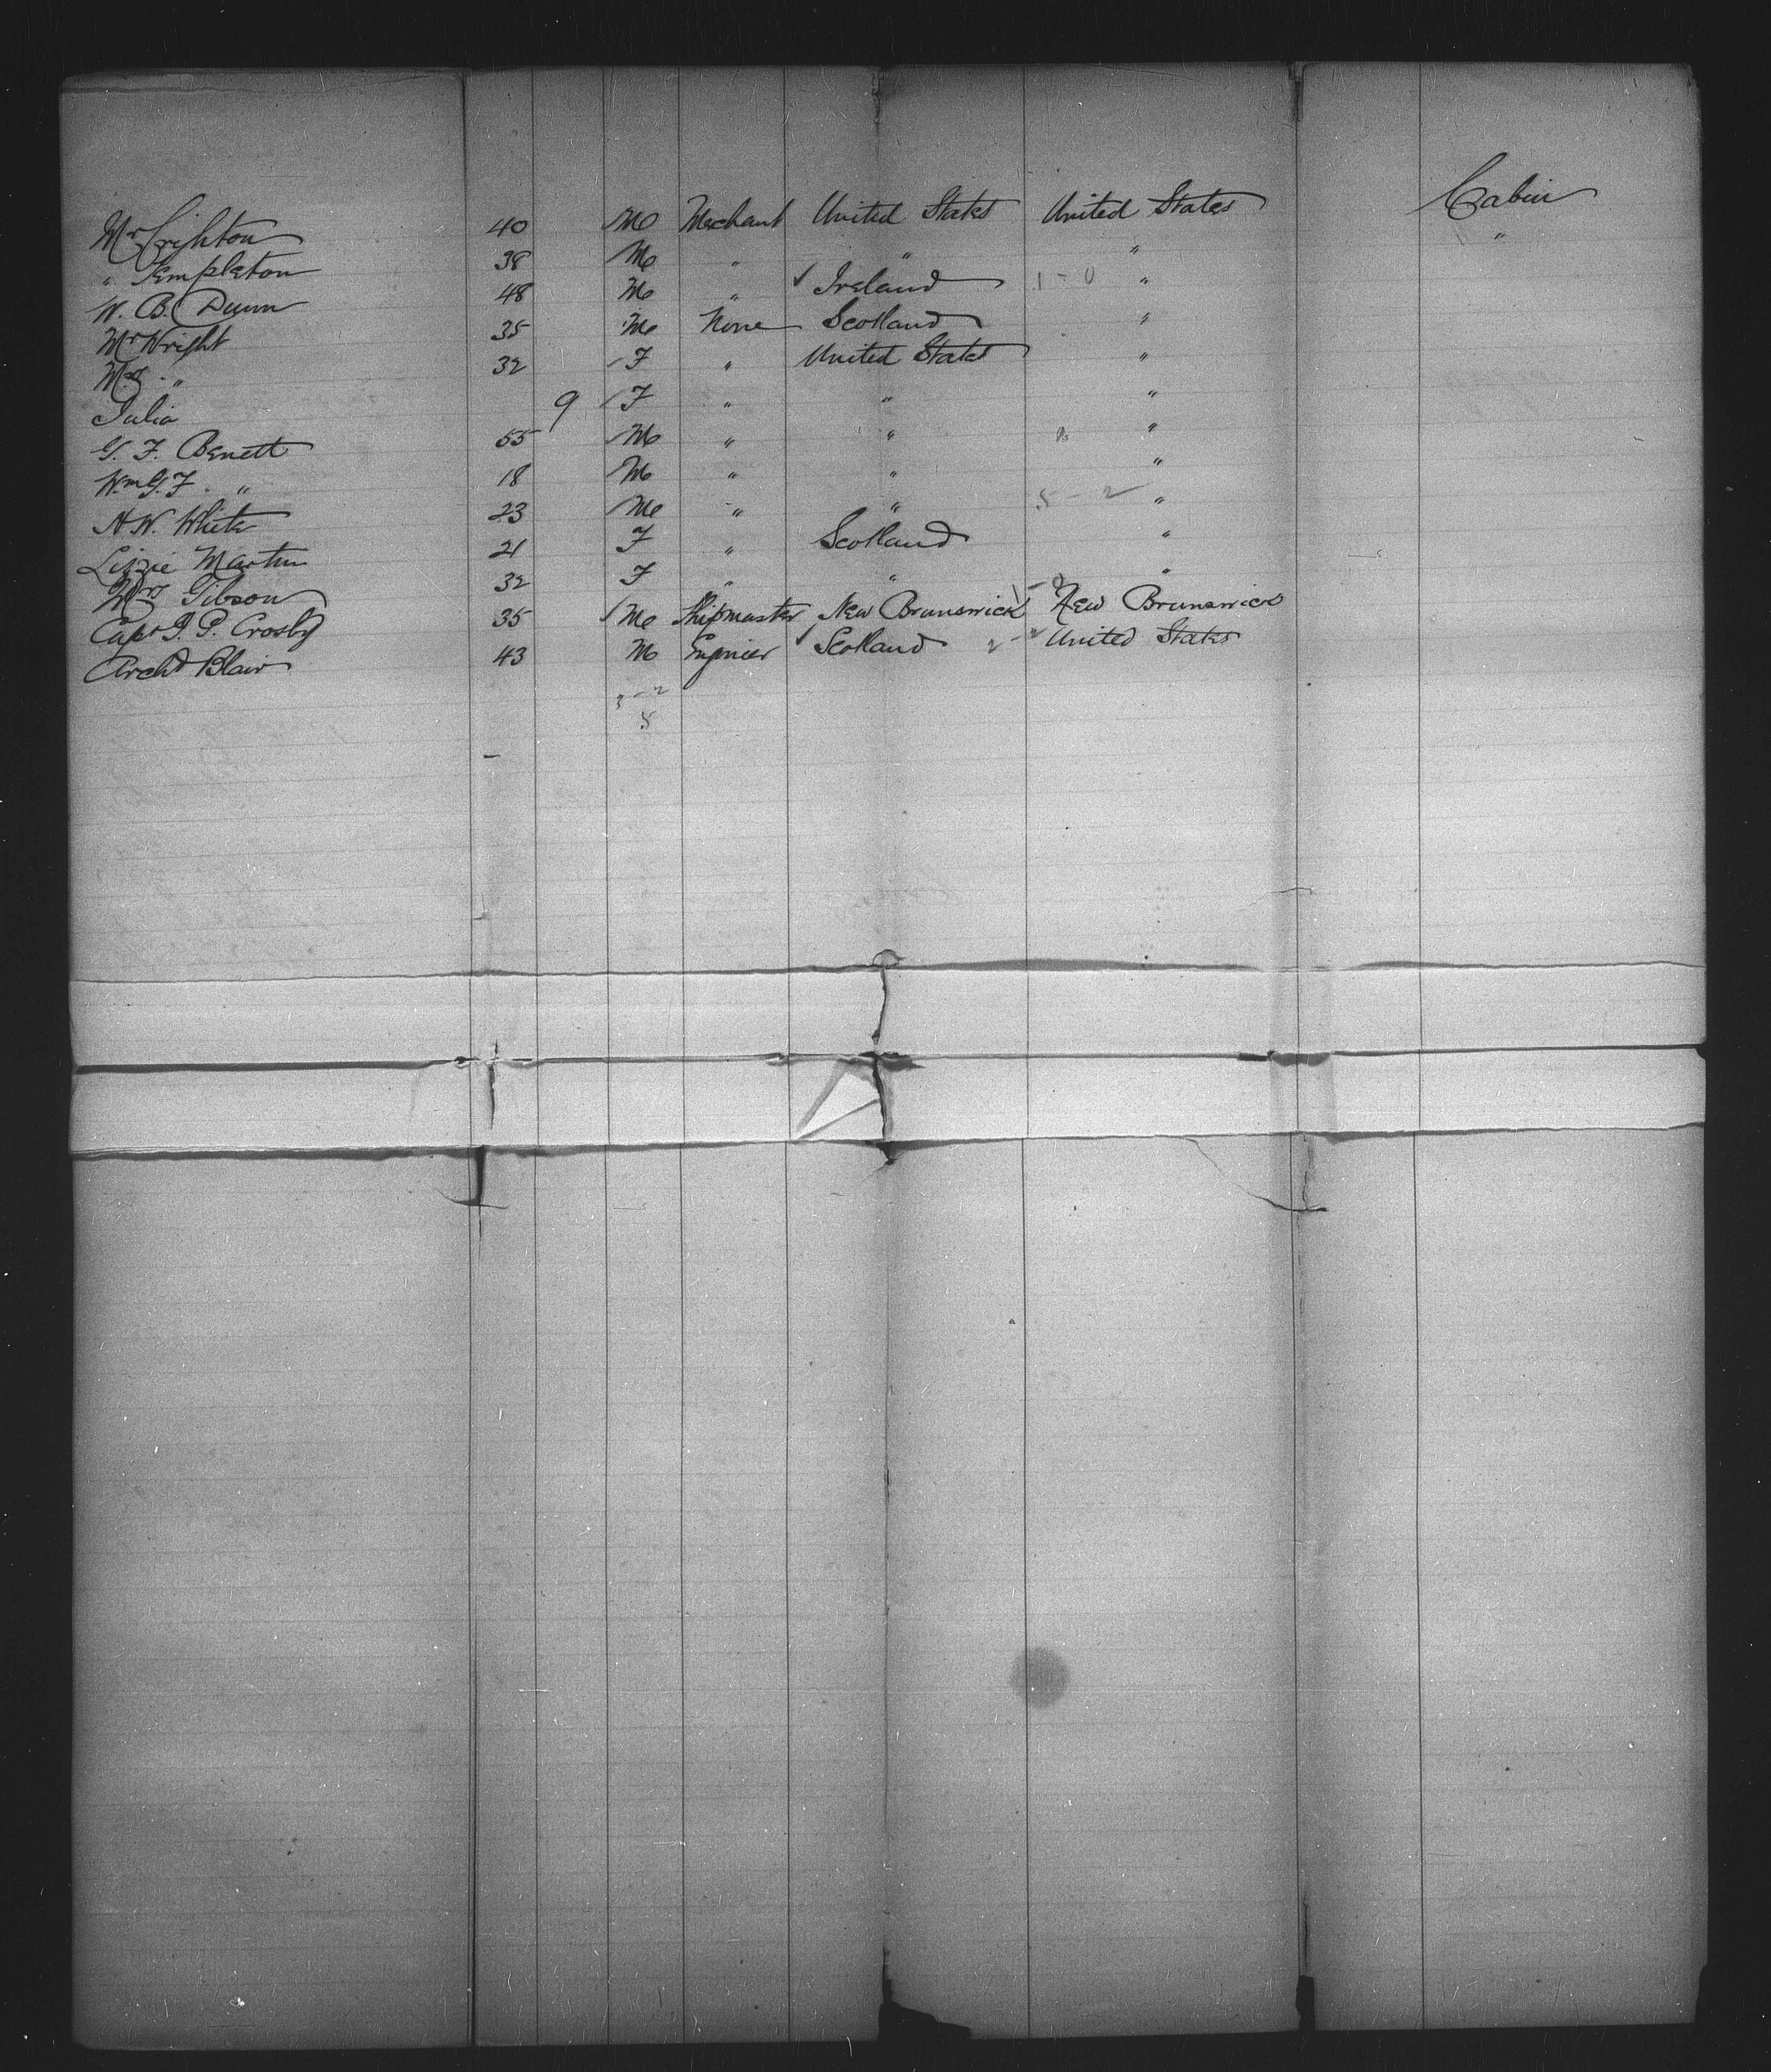 Mr Crighton 40 M Mechant United States United States Cabin
" Templeton 38 M " " " "
W. B. Dunn 48 M " Ireland 1-0 "
Mr Wright 35 M None Scotland "
Mrs " 32 F " United States "
Julia 9 F " " "
G. F. Benett 55 M " " "
Wm G. F. " 18 M " " "
A W. White 23 M " " 5-2 "
Lizzie Martin 21 F " Scotland "
Mrs Gibson 32 F " " "
Capt J. P. Crosby 35 M Shipmaster New Brunswick New Brunswick
Archd Blair 43 M Enginier Scotland 2-2 United States
3-2
5